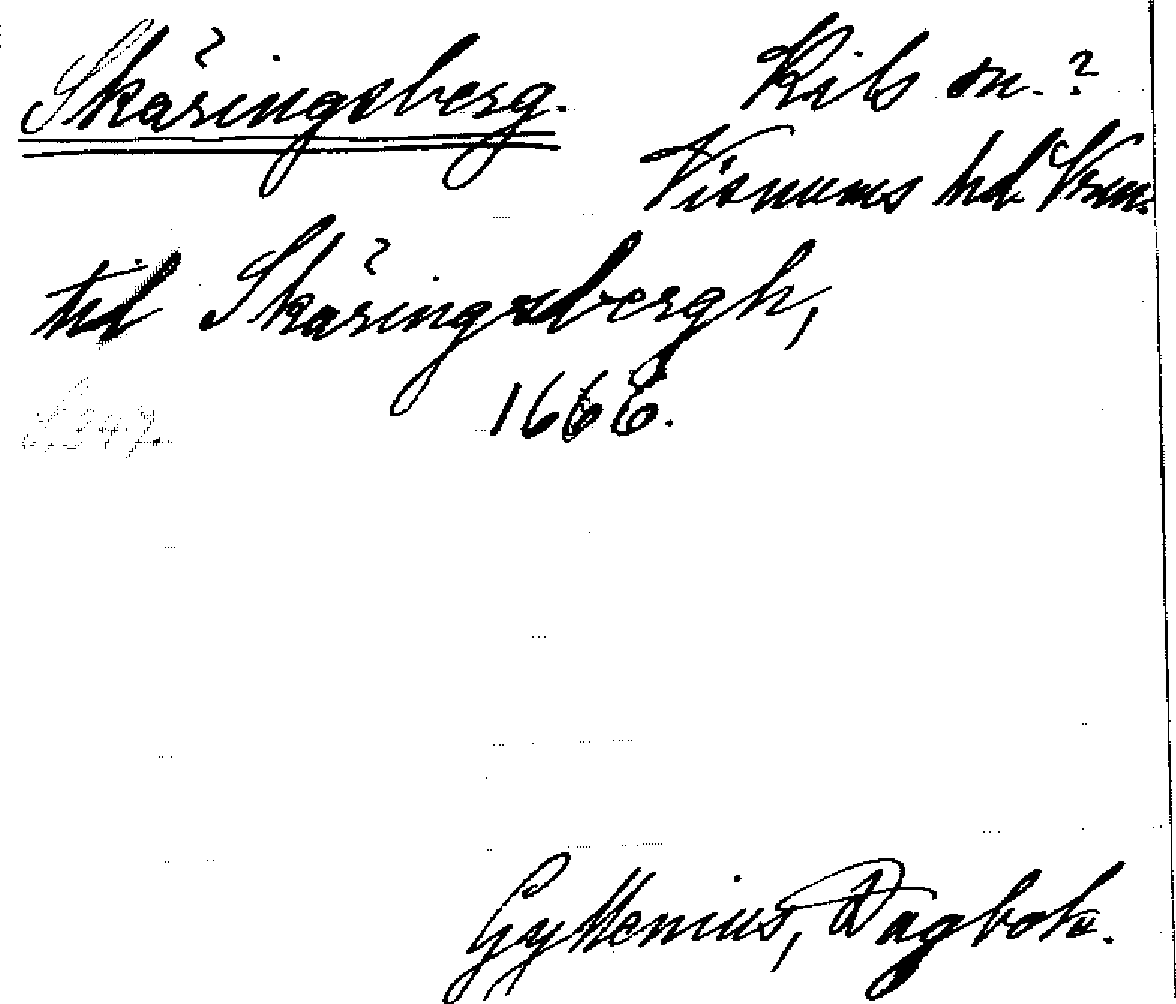 Skäringsberg. Kils sn. ?
Visnums hd. Vrm.
Skäringsbergh,
1666.
Gyllenius, Dagbok.